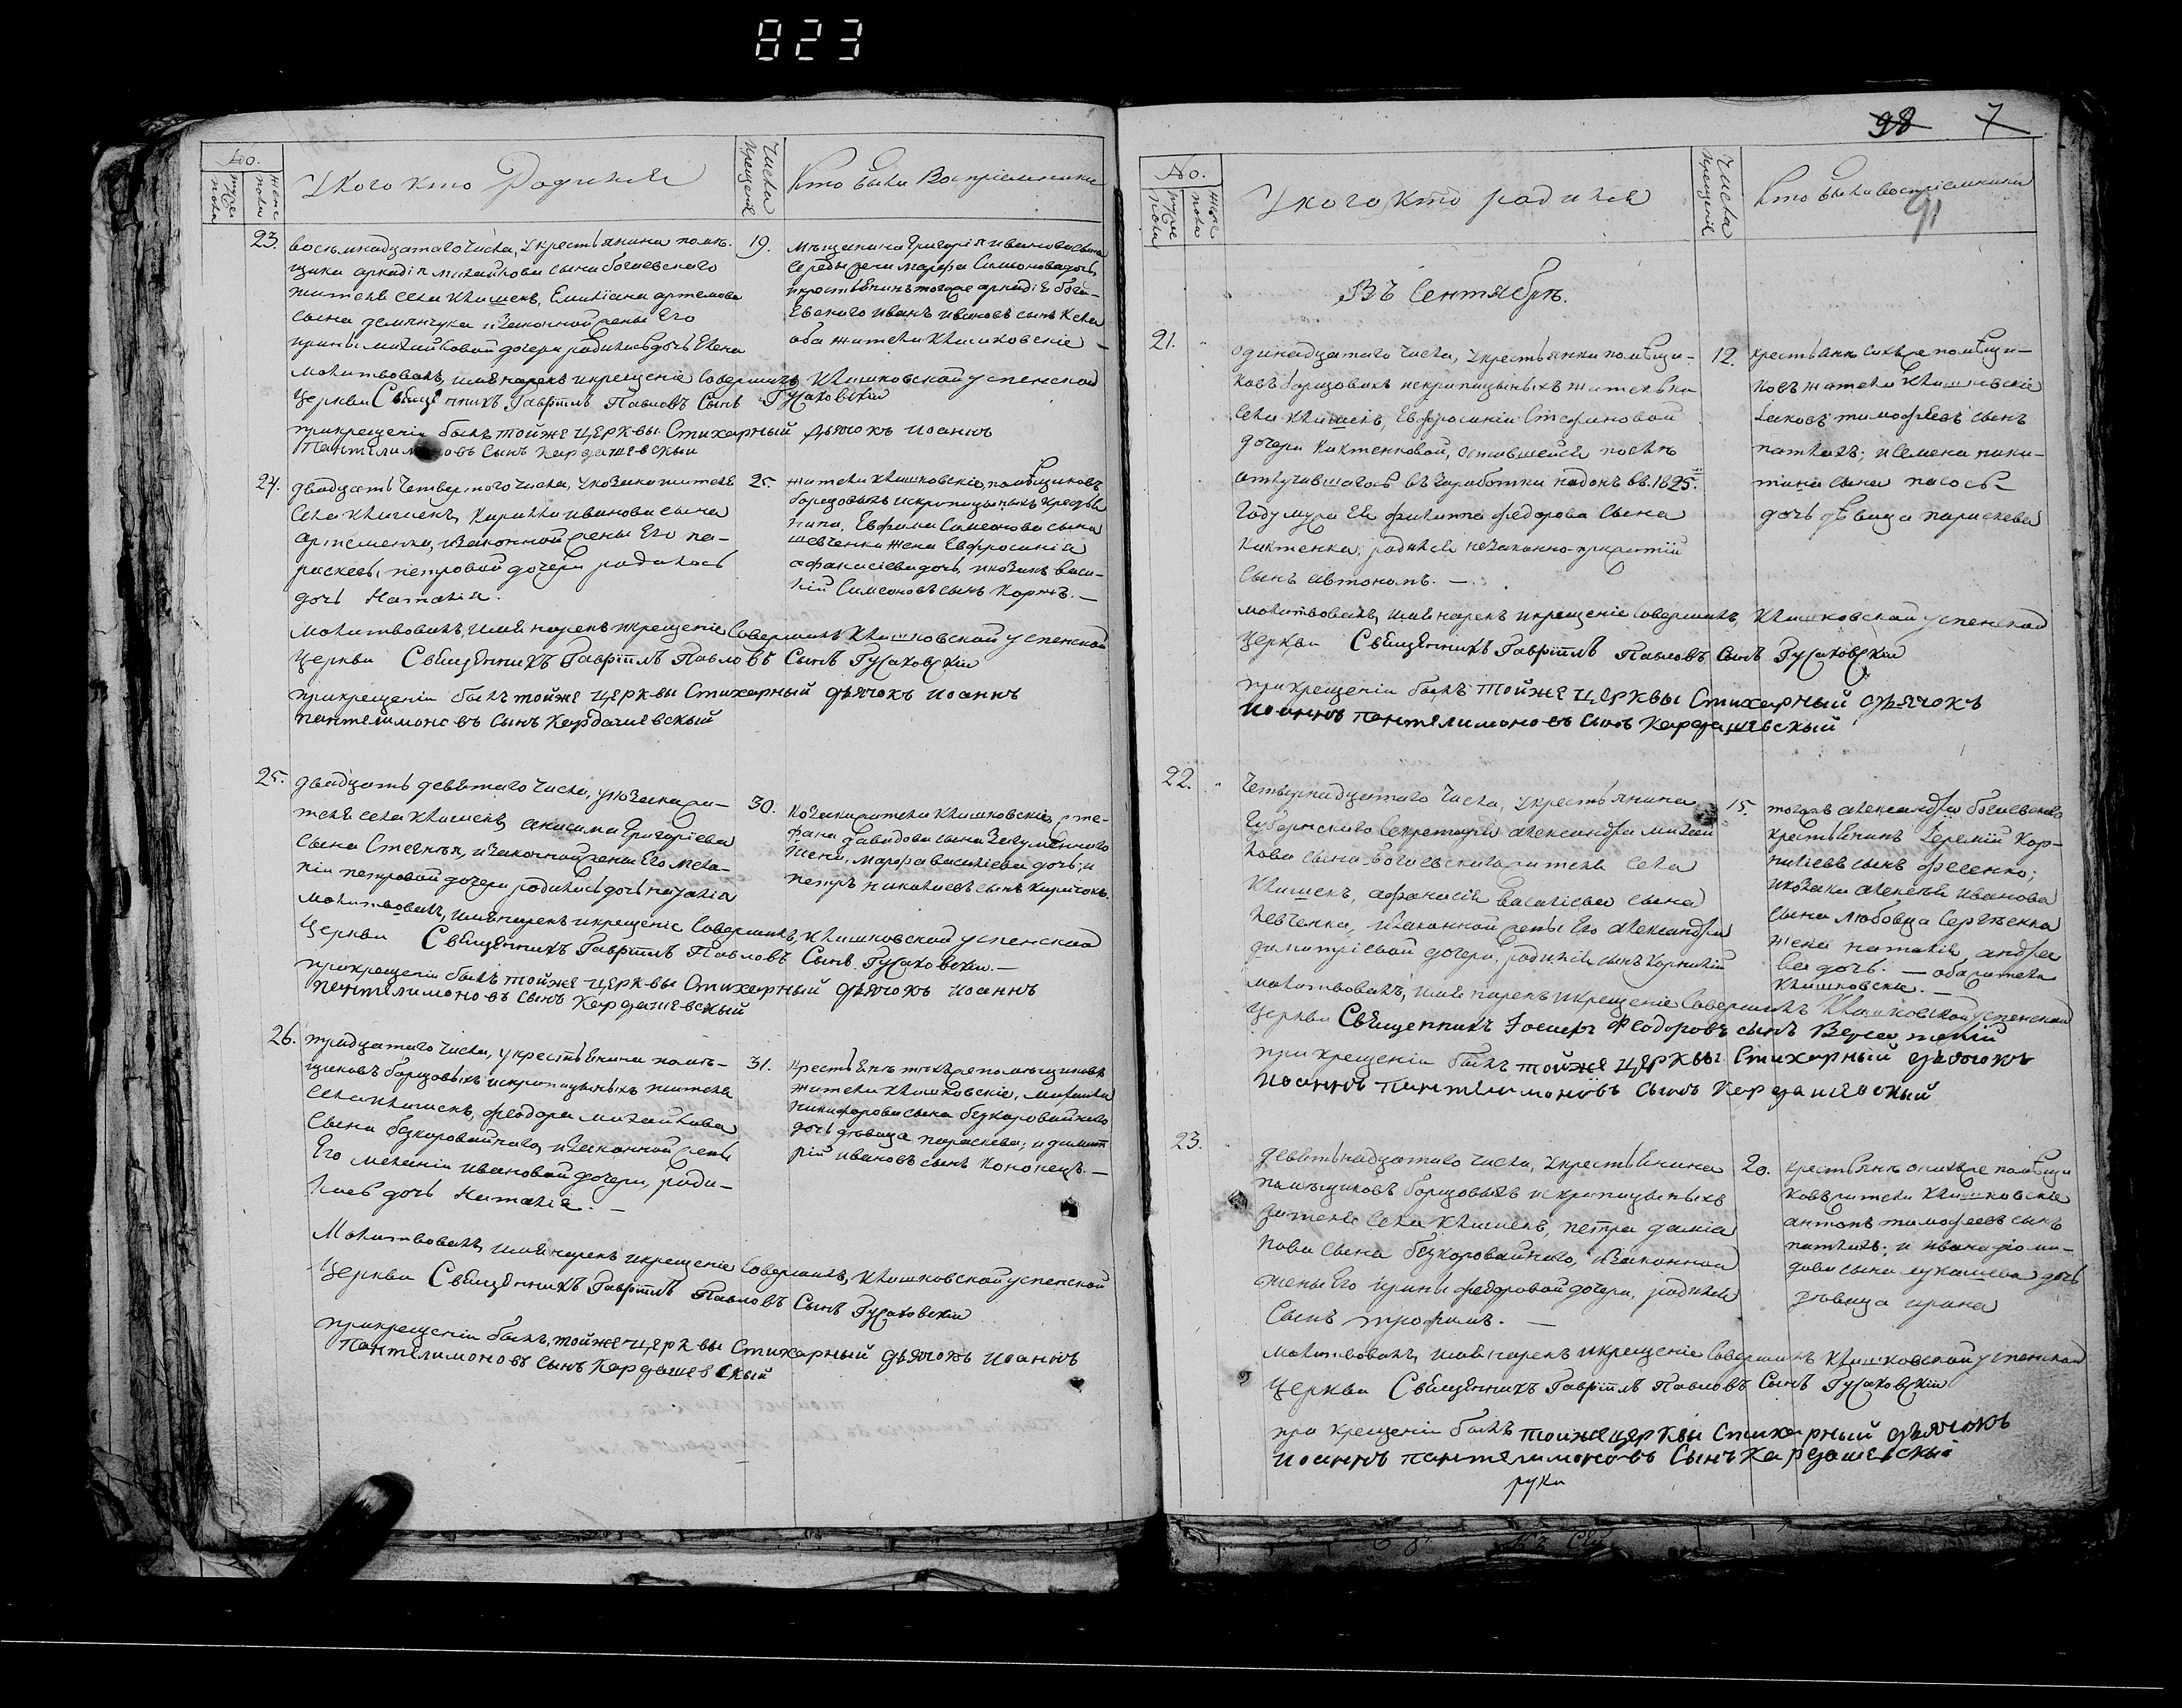 823
No.
муже пола
жене пола
У кого кто Родился
Числа крещенiе
Кто были Воспрiемники
23.
восемнадцатаго числа, укрестьянина помѣ-
щика аркадiя михайлова сына богаевского
жителя села клишекъ, Емилiана артемова
сына демянчука изаконной жены Его
ирины михайловой дочери родилась дочь Елена
19.
мѣщанина григорiя иванова сына
Середы жена марфа Симонова дочь
икрестьянинъ тогоже аркадiя бога-
Евского иванъ ивановъ сынъ
оба жители клишковскiе —
молитвовалъ, имя нарекъ икрещенiе Совершилъ клишковской успенской
Церкви Священникъ Гаврiилъ Павловъ Сынъ Гусаковскiй
прикрещенiи былъ тойже церквы Стихарный дьячокъ иоаннъ
Пантелимоновъ Сынъ Кардашевскый
24.
двадцать четвертого числа, укозака жителя
Села клишекъ, Кирилла иванова сына
артеменка, изаконной жены Его па-
раскевы петровой дочери родилась
дочь Наталiя.
25.
жители клишковскiе, помѣщиковъ
борщовыхъ искрипицыныхъ крестья-
нина, Евфима Симеонова сына
шевченка жена Евфросинiя
афанасiева дочь, икозакъ васи-
лiй Симеоновъ сынъ Коржъ. —
молитвовалъ, имя нарекъ икрещенiе Совершилъ Клишковской успенской
Церкви Священникъ Гаврiилъ Павловъ Сынъ Гусаковскiй
прикрещенiи былъ тойже церквы Стихарный дьячокъ иоаннъ
пантелимоновъ сынъ Кардашевскый
25.
двадцать девятаго числа, укозака жи-
теля села клишекъ анисима Григорiева
сына Стегнея, изаконной жены Его мела-
нiи петровой дочери родилась дочь наталiя
30.
Козака жителя Клишковскiе, сте-
фана давидова сына
жена, марфа василiева дочь; и
петръ николаевъ сынъ Кириченко.
молитвовалъ, имя нарекъ икрещенiе Совершилъ, клишковской успенской
Церкви Священникъ Гаврiилъ Павловъ Сынъ Гусаковскiй. —
прикрещенiи былъ тойже церквы Стихарный дьячокъ иоаннъ
пантелимоновъ сынъ Кардашевскый
26.
тридцатаго числа, укрестьянина помѣ-
щиковъ борщовыхъ искрипицыныхъ жителя
Села клишекъ, феодора михайлова
Сына безкоровайнаго, изаконной жены
Его меланiи ивановой дочери, роди-
лась дочь Наталiя. —
31.
Крестьянъ тѣхъже помѣщиковъ
жители клишковскiе, михаила
никифорова сына безкоровайнаго
дочь дѣвица параскева; и димит
рiй ивановъ сынъ Кононецъ. —
Молитвовалъ, имя нарекъ икрещенiе Совершилъ, клишковской успенской
Церкви Священникъ Гаврiилъ Павловъ Сынъ Гусаковскiй
прикрещенiи былъ, тойже церквы Стихарный дьячокъ иоаннъ
Пантелимоновъ сынъ Кардашевскый
98 7
No.
муже пола
жене пола
У кого кто родился
Числа крещенiе
Кто были воспрiемники
91
Въ Сентябрѣ.
21.
одинадцатаго числа, укрестьянки помѣщи-
ковъ борщовыхъ искрипицыныхъ жителька
Села клишекъ, Евфросинiи Стефановой
дочери Киктенковой, оставшейся послѣ
отлучившагося въ заработки надонъ въ 1825.
Году мужа Ея филиппа федорова сына
Киктенка; родился незаконно-прижитiй
Сынъ автономъ. —
12.
крестьянъ сихъже помѣщи-
ковъ жители клишковскiе
яковъ тимофѣевъ сынъ
; исемена ники-
тина сына
дочь дѣвица параскева
молитвовалъ, имя нарекъ икрещенiе Совершилъ, клишковской успенской
Церкви Священникъ Гаврiилъ Павловъ Сынъ Гусаковскiй
прикрещенiи былъ тойже церквы Стихарный дьячокъ
иоаннъ пантелимоновъ сынъ Кардашевскый
22.
Четырнадцатаго числа, укрестьянина
Губернского Секретаря александра михай
лова сына богаевского жителя села
Клишекъ, афанасiя василiева сына
Левченка, изаконной жены Его александры
димитрiевой дочери, родился сынъ Корнилiй
15.
тогожъ александра богаевского
крестьянинъ Iеремiй Кор-
нилiевъ сынъ фесенко;
икозака алексѣя иванова
сына любовца Сергѣенка
жена наталiя андрее
ва дочь. — оба жители
клишковскiе. —
молитвовалъ, имя нарекъ икрещенiе Совершилъ Клишковской успенской
Церкви Священникъ Iосифъ Феодоровъ сынъ
прикрещенiи былъ тойже церквы Стихарный дьячокъ
иоаннъ пантелимоновъ сынъ Кардашевскый
23.
девятьнадцатаго числа, укрестьянина
помѣщиковъ борщовыхъ искрипицыныхъ
жителя села клишекъ, петра дамiа
нова сына безкоровайнаго, изаконной
жены Его ирины федоровой дочери, родился
Сынъ трофимъ. —
20.
крестьянъ онихъже помѣщи
ковъ жители клишковскiе
антонъ тимофеевъ сынъ
; и ивана
дова сына лукашева дочь
дѣвица ирина
молитвовалъ, имя нарекъ икрещенiе Совершилъ клишковской успенской
Церкви Священникъ Гаврiилъ Павловъ Сынъ Гусаковскiй
при крещенiи былъ тойже церквы Стихарный дьячокъ
иоаннъ пантелимоновъ Сынъ Кардашевскый
рука